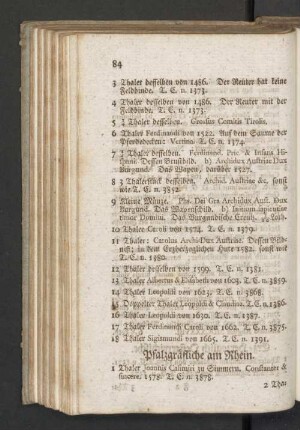 84
3 Thaler desselben von 1486. Der Reuter hat keine
Feldbinde. T. E. n. 1373.
4 Thaler desselben von 1486. Der Reuter mit der
Feldbinde. T. E. n.
5 Thaler desselben. Grossus Comitis Tirolis.
6 Thaler Ferdinandi von 1522. Auf dem Saume der
Pferdedecken: T. E. n. 1374.
7 Thaler desselben. Ferdinand. Pri. & Infans
Dessen Brustbild. b) Archidux Austriae Dux
Das Wapen, darüber 1527.
8 3 Thalerstück desselben. Archid. Austriae &c. sonst
wie T. E. n. 3852.
9 Kleine Münze. Phs. Dei Gra Archidux Aust. Dux
Burgund. Das Wapenschild. b) Initium sapientiae
timor Domini. Das Burgundische Creutz. Loth.
10 Thaler Caroli von 1574. T. E. n. 1379.
11 Thaler: Carolus Archidux Austriae. Dessen Bild-
niß; in dem Erzherzoglichen Hute 1582. sonst wie
T. E. n. 1380.
12 Thaler desselben von 1599. T. E. n. 1381.
13 Thaler Alberti & Elisabeth von 1605. T. E. n. 3859.
14 Thaler Leopoldi von 1623. T. E. n. 3868.
15 Doppelter Thaler Leopoldi & Claudiae. T. E. n. 1386.
16 Thaler Leopoldi von 1630. T. E. n. 1387.
17 Thaler Ferdinandi Caroli von 1662. T. E. n. 3875.
18 Thaler Sigismundi von 1665. T. E. n. 1391.
Pfalzgräfliche am Rhein.
1 Thaler Joannis Casimiri zu Simmern. Constanter &
sincere. 1578. T. E. n. 3878.
2 Tha-